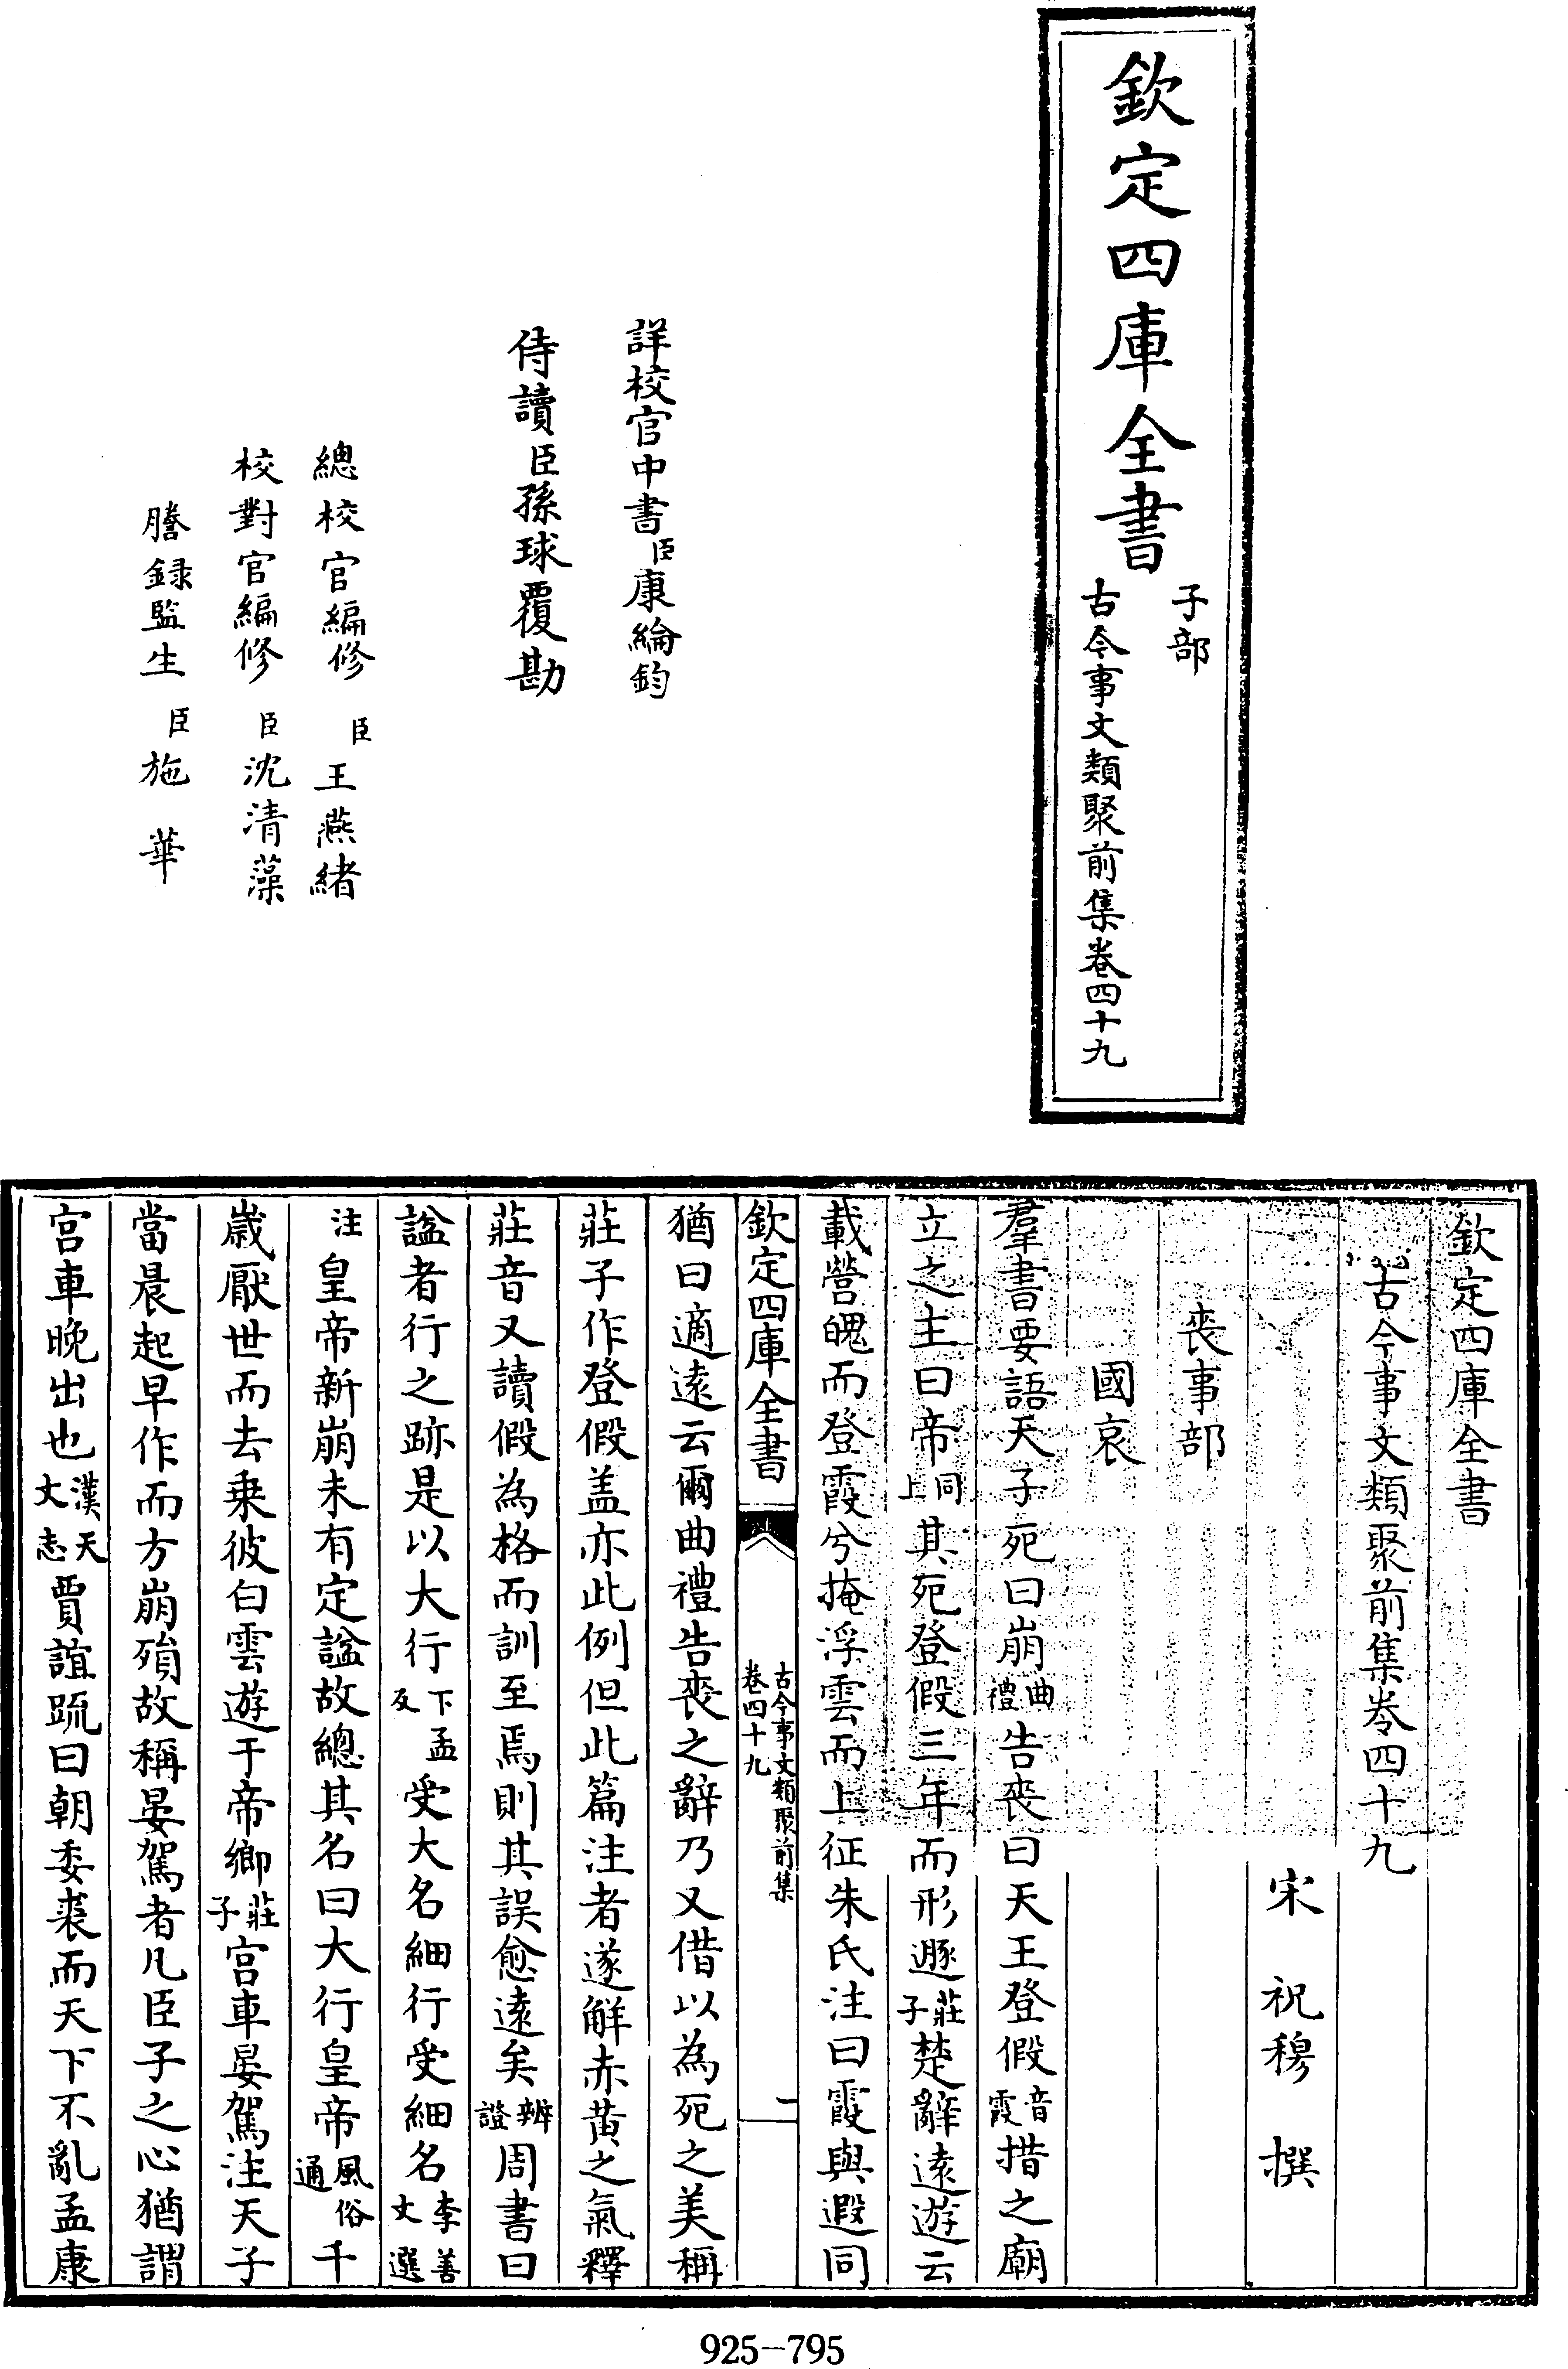 欽定四庫全書
子部
古今事文類聚前集卷四十九
詳校官中書臣康綸鈞
侍讀臣孫球覆勘
總校官編修臣王燕緒
校對官編修臣沈清藻
謄録監生臣施華
欽定四庫全書
古今事文類聚前集卷四十九
宋 祝穆 撰
喪事部
國哀
羣書要語天子死曰崩曲禮告喪曰天王登假音霞措之廟
立之主曰帝同上其死登假三年而形遯莊子楚辭遠遊云
載營魄而登霞兮掩浮雲而上征朱氏注曰霞與遐同
欽定四庫全書
古今事文類聚前集
卷四十九
一
猶曰適遠云爾曲禮告喪之辭乃又借以為死之美稱
莊子作登假盖亦此例但此篇注者遂解赤黄之氣釋
莊音又讀假為格而訓至焉則其誤愈遠矣辨證周書曰
諡者行之跡是以大行下孟反受大名細行受細名李善文選
注皇帝新崩未有定諡故總其名曰大行皇帝風俗通千
歲厭世而去乗彼白雲遊于帝鄉莊子宫車晏駕注天子
當晨起早作而方崩殞故稱晏駕者凡臣子之心猶謂
宫車晚出也漢天文志賈誼疏曰朝委裘而天下不亂孟康
925-795